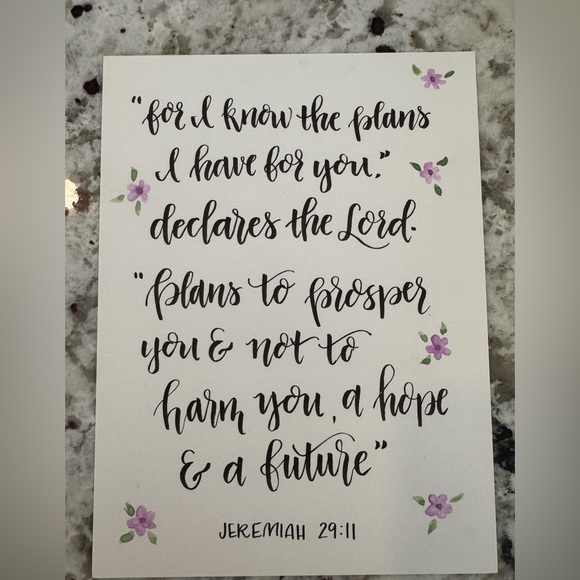 "for I know the plans
I have for you,"
declares the Lord.
"plans to prosper
you & not to
harm you, a hope
& a future"
JEREMIAH 29:11